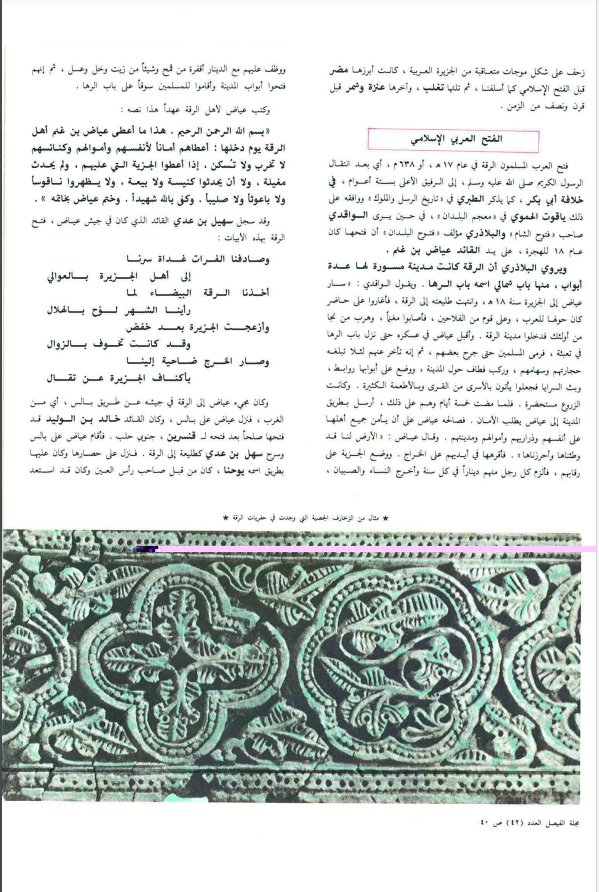 زحف على شكل موجات متعاقبة من الجزيرة العربية ، كانت أبرزها مضر
قبل الفتح الإسلامي كما أسلفنا ، ثم تلتها تغلب ، وآخرها عنزة وشمر قبل
قرن ونصف من الزمن .
الفتح العربي الإسلامي
فتح العرب المسلمون الرقة في عام ١٧ هـ ، أو ٦٣٨ م ، أي بعد انتقال
الرسول الكريم صلى الله عليه وسلم ، إلى الرفيق الأعلى بستة أعوام ، في
خلافة أبي بكر ، كما يذكر الطبري في « تاريخ الرسل والملوك » ووافقه على
ذلك ياقوت الحموي في « معجم البلدان » ، في حين يرى الواقدي
صاحب « فتوح الشام » والبلاذري مؤلف « فتوح البلدان » أن فتحها كان
عام ١٨ للهجرة ، على يد القائد عياض بن غنم .
ويروي البلاذري أن الرقة كانت مدينة مسورة لها عدة
أبواب ، منها باب شمالي اسمه باب الرها . ويقول الواقدي : « سار
عياض إلى الجزيرة سنة ١٨ هـ ، وانتهت طليعته إلى الرقة ، فأغاروا على حاضر
كان حولها للعرب ، وعلى قوم من الفلاحين ، فأصابوا مغنماً ، وهرب من نجا
من أولئك فدخلوا مدينة الرقة . وأقبل عياض في عسكره حتى نزل باب الرها
في تعبئة ، فرمى المسلمين حتى جرح بعضهم ، ثم إنه تأخر عنهم لئلا تبلغه
حجارتهم وسهامهم ، وركب فطاف حول المدينة ، ووضع على أبوابها روابط ،
وبث السرايا فجعلوا يأتون بالأسرى من القرى وبالأطعمة الكثيرة . وكانت
الزروع مستحضرة . فلما مضت خمسة أيام وهم على ذلك ، أرسل بطريق
المدينة إلى عياض يطلب الأمان . فصالحه عياض على أن يأمن جميع أهلها
على أنفسهم وذراريهم وأموالهم ومدينتهم . وقال عياض : « الأرض لنا قد
وطئناها وأحرزناها » . فأقرها في أيديهم على الخراج . ووضع الجزية على
رقابهم ، فألزم كل رجل منهم ديناراً في كل سنة وأخرج النساء والصبيان ،
ووظف عليهم مع الدينار أقفزة من قمح وشيئاً من زيت وخل وعسل ، ثم إنهم
فتحوا أبواب المدينة وأقاموا للمسلمين سوقاً على باب الرها .
وكتب عياض لأهل الرقة عهداً هذا نصه :
« بسم الله الرحمن الرحيم . هذا ما أعطى عياض بن غنم أهل
الرقة يوم دخلها : أعطاهم أماناً لأنفسهم وأموالهم وكنائسهم
لا تخرب ولا تُسكن ، إذا أعطوا الجزية التي عليهم ، ولم يحدث
مغيلة ، ولا أن يحدثوا كنيسة ولا بيعة ، ولا يظهروا ناقوساً
ولا باعوثاً ولا صليباً . وكفى بالله شهيداً . وختم عياض بخاتمه » .
وقد سجل سهيل بن عدي القائد الذي كان في جيش عياض ، فتح
الرقة بهذه الأبيات :
وصادفنا الفرات غداة سرنا
إلى أهل الجزيرة بالعوالي
أخذنا الرقة البيضاء لما
رأينا الشهر لوّح بالهلال
وأزعجت الجزيرة بعد خفض
وقد كانت تخوف بالزوال
وصار الخرج ضاحية إلينا
بأكناف الجزيرة عن تقال
وكان مجيء عياض إلى الرقة في جيشه عن طريق بالس ، أي من
الغرب ، فنزل عياض على بالس ، وكان القائد خالد بن الوليد قد
فتحها صلحاً بعد فتحه لـ قنسرين ، جنوبي حلب . فأقام عياض على بالس
وسرح سهل بن عدي كطليعة إلى الرقة . فنزل على حصارها وكان عليها
بطريق اسمه يوحنا ، كان من قبل صاحب رأس العين وكان قد استعد
★ مثال من الزخارف الجصية التي وجدت في حفريات الرقة ★
مجلة الفيصل العدد (٤٢) ص ٤٠